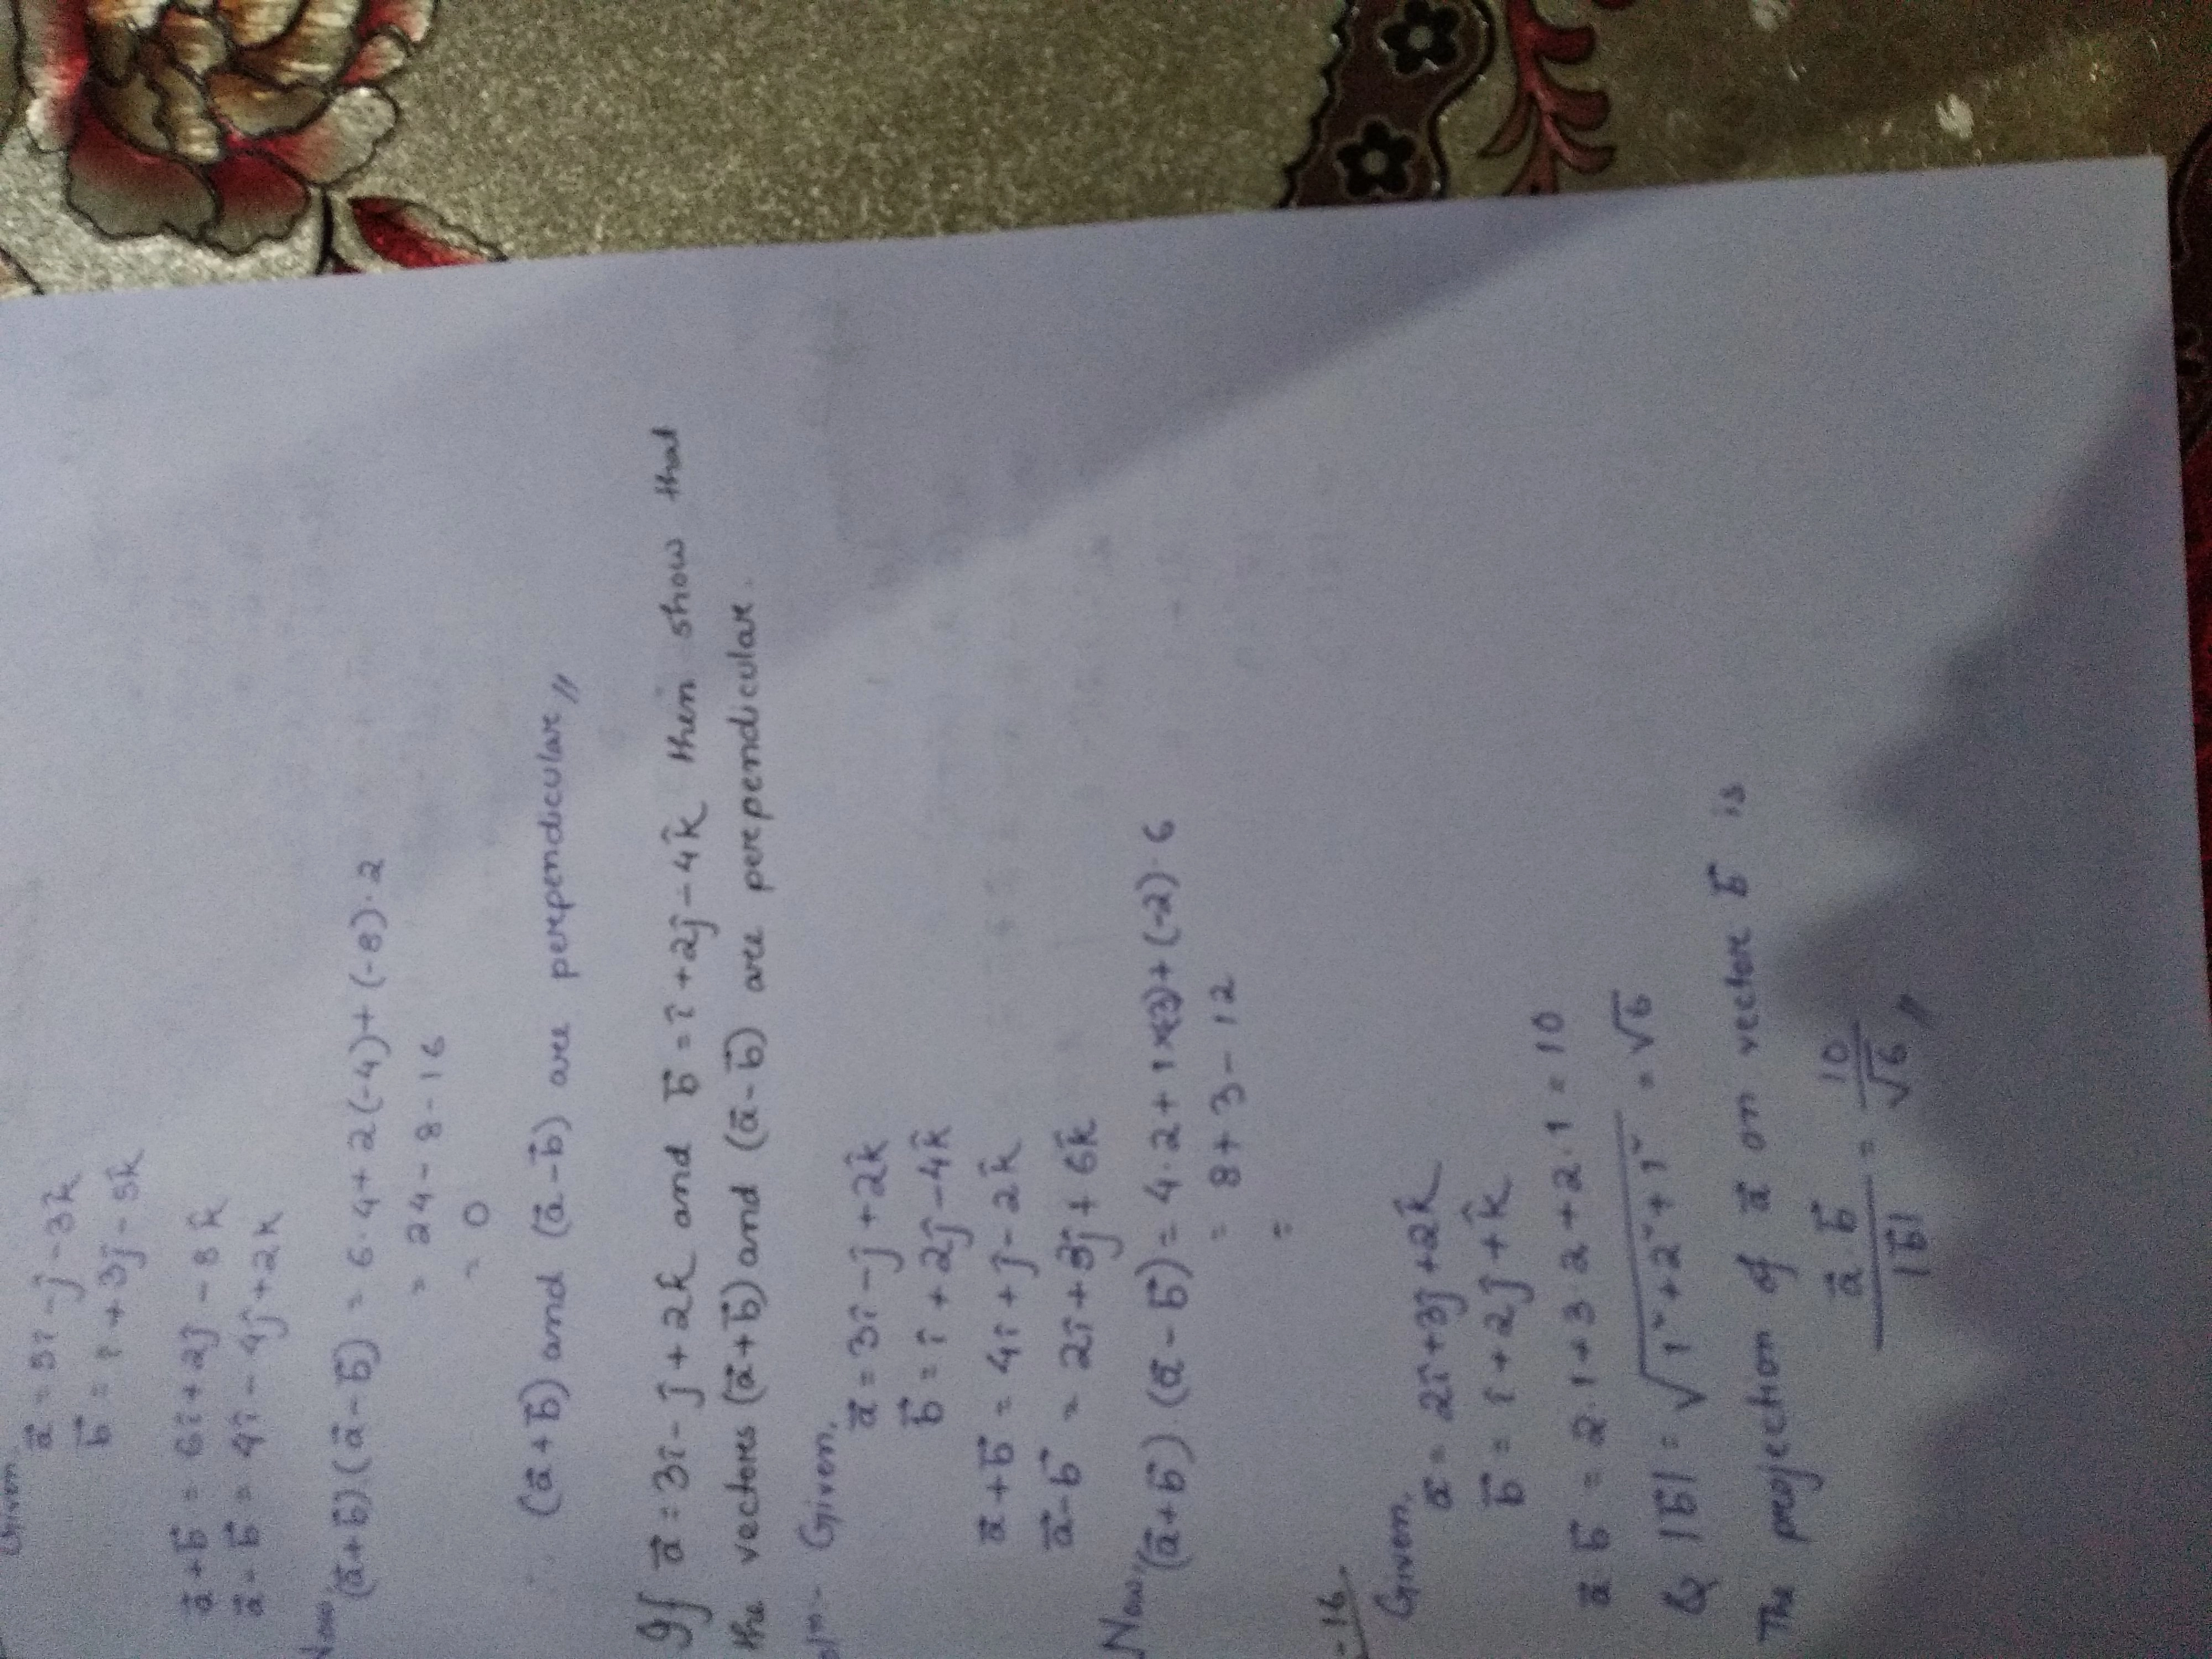 Given
a⃗ = 5î - ĵ - 3k̂
b⃗ = î + 3ĵ - 5k̂
a⃗+b⃗ = 6î + 2ĵ - 8k̂
a⃗-b⃗ = 4î - 4ĵ + 2k
Now,
(a⃗+b⃗).(a⃗-b⃗) = 6.4+2(-4)+(-8).2
= 24-8-16
= 0
∴ (a⃗+b⃗) and (a⃗-b⃗) are perpendicular,,
If a⃗ = 3î - ĵ + 2k̂ and b⃗ = î + 2ĵ - 4k̂ then show that
the vectors (a⃗+b⃗) and (a⃗-b⃗) are perpendicular.
Given,
a⃗ = 3î - ĵ + 2k̂
b⃗ = î + 2ĵ - 4k̂
a⃗+b⃗ = 4î + ĵ - 2k̂
a⃗-b⃗ = 2î + 3ĵ + 6k̂
Now,
(a⃗+b⃗).(a⃗-b⃗) = 4.2+1×(3)+(-2).6
= 8+3-12
=
-16.
Given,
a⃗ = 2î + 3ĵ + 2k̂
b⃗ = î + 2ĵ + k̂
a⃗.b⃗ = 2.1+3.2+2.1 = 10
& |b⃗| = √1²+2²+1² = √6
The projection of a⃗ on vector b⃗ is
a⃗.b⃗/|b⃗| = 10/√6 ,,